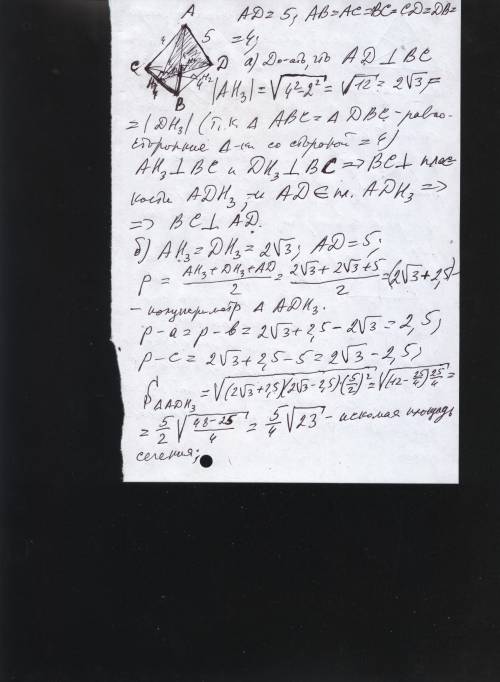 A
AD = 5, AB=AC=BC=CD=DB=
4 5
= 4;
C D
а) Док-ать, что AD ⊥ BC
H₃ B 4 H₂
|AH₃| = √4²-2² = √12 = 2√3 =
= |DH₃| (т.к. Δ ABC = Δ DBC - равно-
сторонние Δ-ки со стороной = 4)
AH₃ ⊥ BC и DH₃ ⊥ BC => BC ⊥ плос-
кости ADH₃, и AD ∈ пл. ADH₃ =>
=> BC ⊥ AD.
б) AH₃ = DH₃ = 2√3; AD = 5;
p = (AH₃ + DH₃ + AD)/2 = (2√3 + 2√3 + 5)/2 = (2√3 + 2,5) -
- полупериметр Δ ADH₃.
p-a = p-b = 2√3 + 2,5 - 2√3 = 2,5;
p-c = 2√3 + 2,5 - 5 = 2√3 - 2,5;
S ΔADH₃ = √(2√3+2,5)(2√3-2,5)·(5/2)² = √(12 - 25/4) 25/4 =
= 5/2 √(48-25)/4 = 5/4 √23 - искомая площадь
сечения;